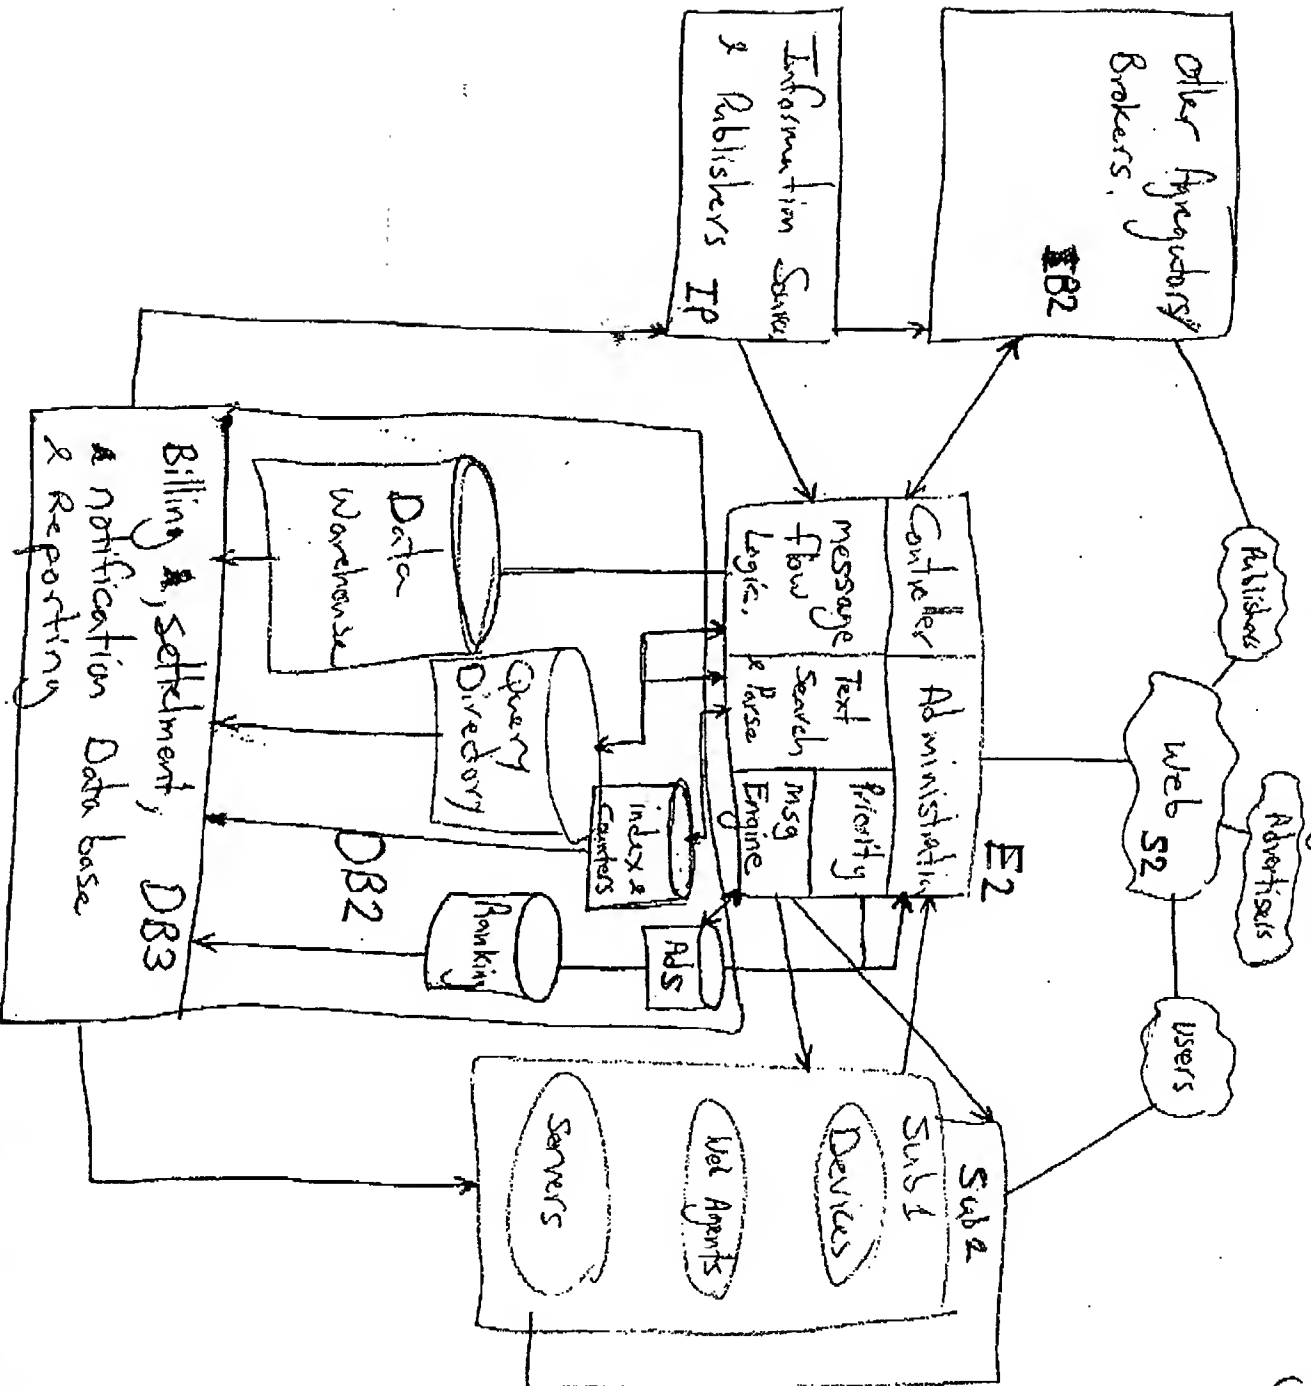 Other Agregators/
Brokers.
IB2
Information Source
& Publishers IP
Publishers
Advertisers
Web
S2
Users
E2
Controller
Administration
message
flow
Logic,
Text
Search
& Parse
Priority
Msg
Engine
Data
Warehouse
Query
Directory
index &
Counters
Ads
Ranking
DB2
Billing, settelment,
& notification Data base
& Reporting
DB3
Sub2
Sub1
Devices
Web Agents
Servers